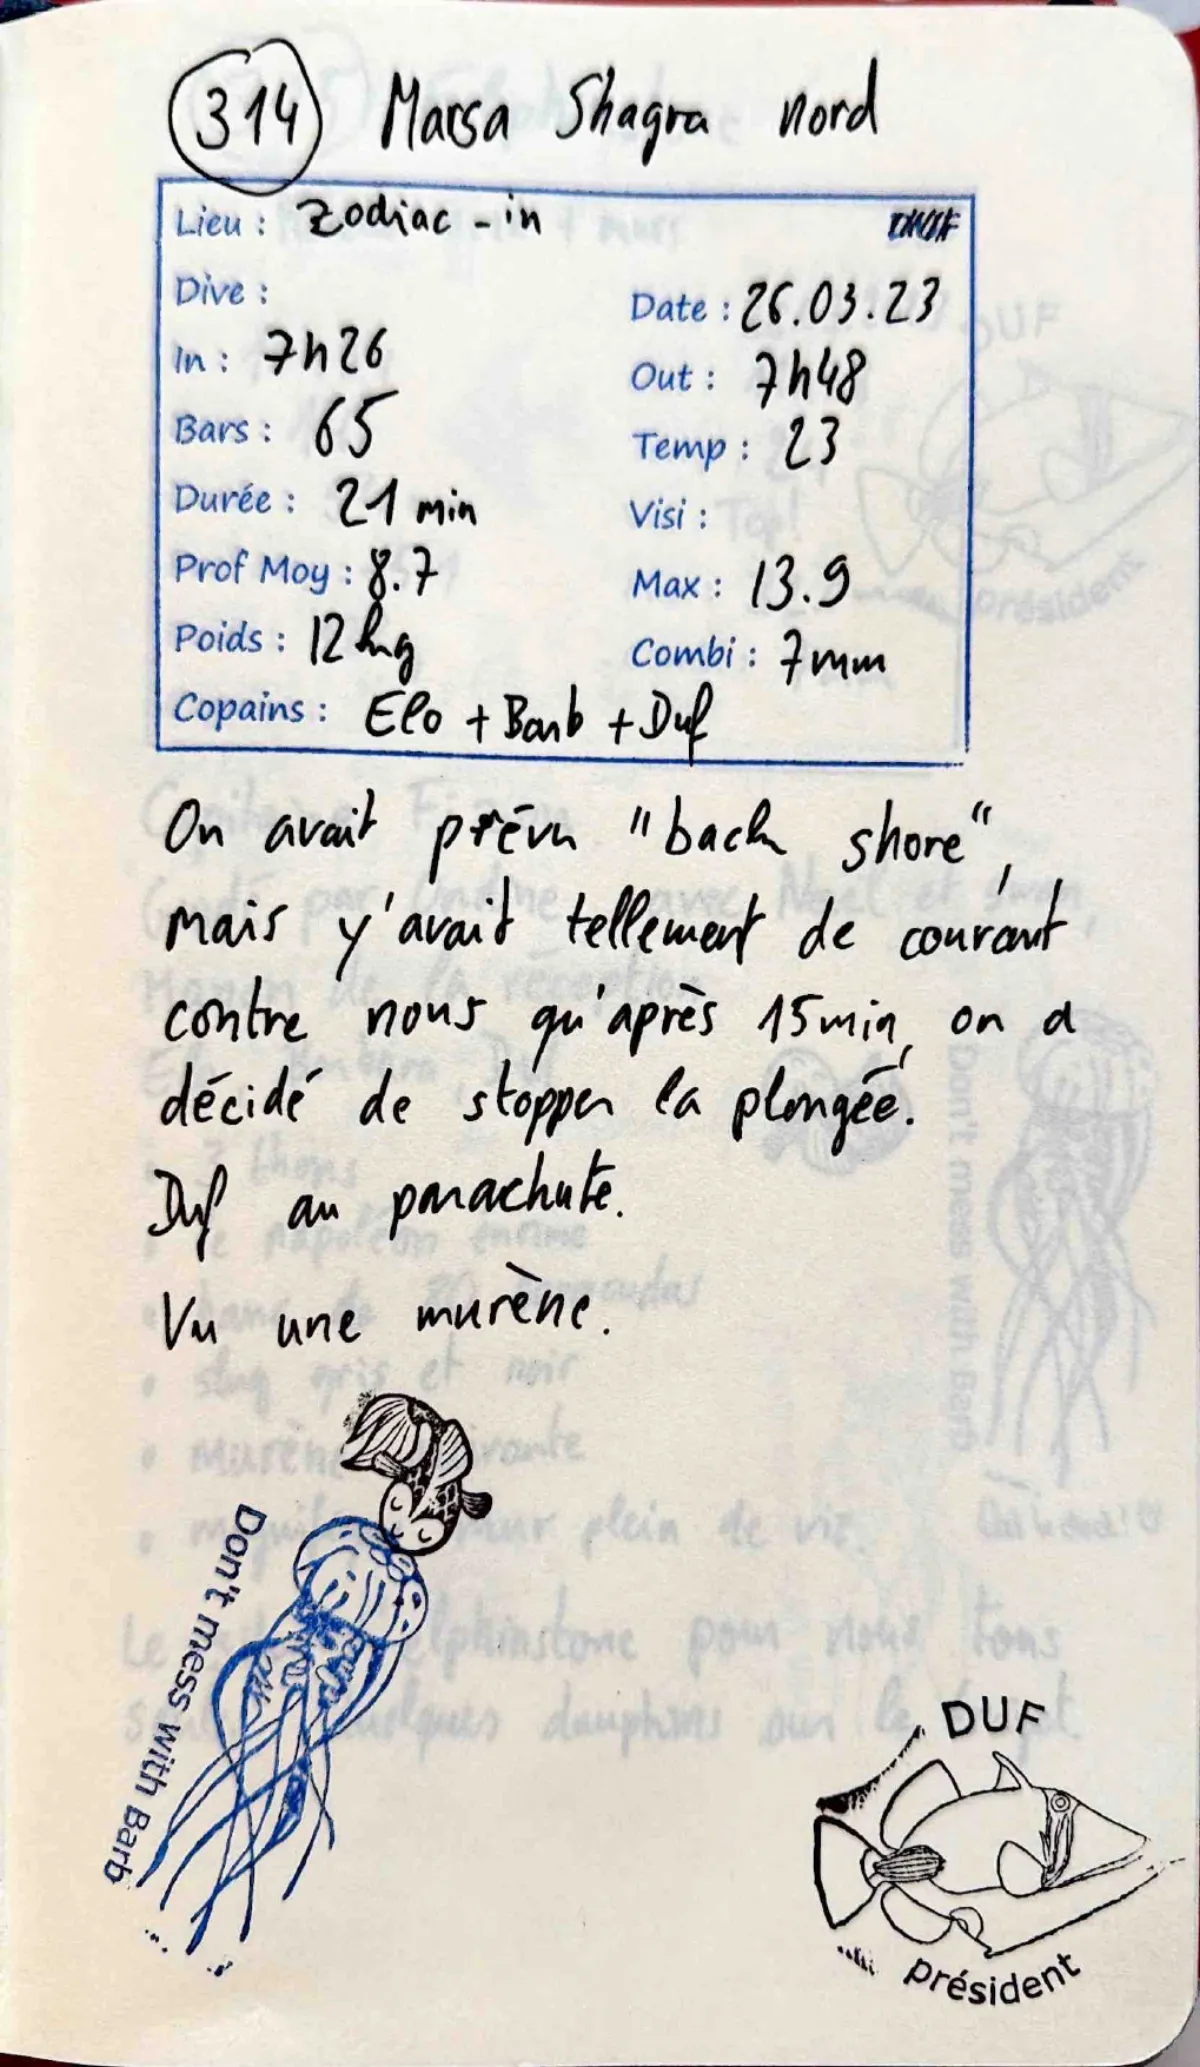 314 Marsa Shagra nord
Lieu : Zodiac - in
Dive :
Date : 26.03.23
In : 7h26
Out : 7h48
Bars : 65
Temp : 23
Durée : 21 min
Visi :
Prof Moy : 8.7
Max : 13.9
Poids : 12 kg
Combi : 7mm
Copains : Elo + Barb + Duf
On avait prévu "back shore",
mais y'avait tellement de courant
contre nous qu'après 15min, on a
décidé de stopper la plongée.
Duf au parachute.
Vu une murène.
Don't mess with Barb
DUF
président